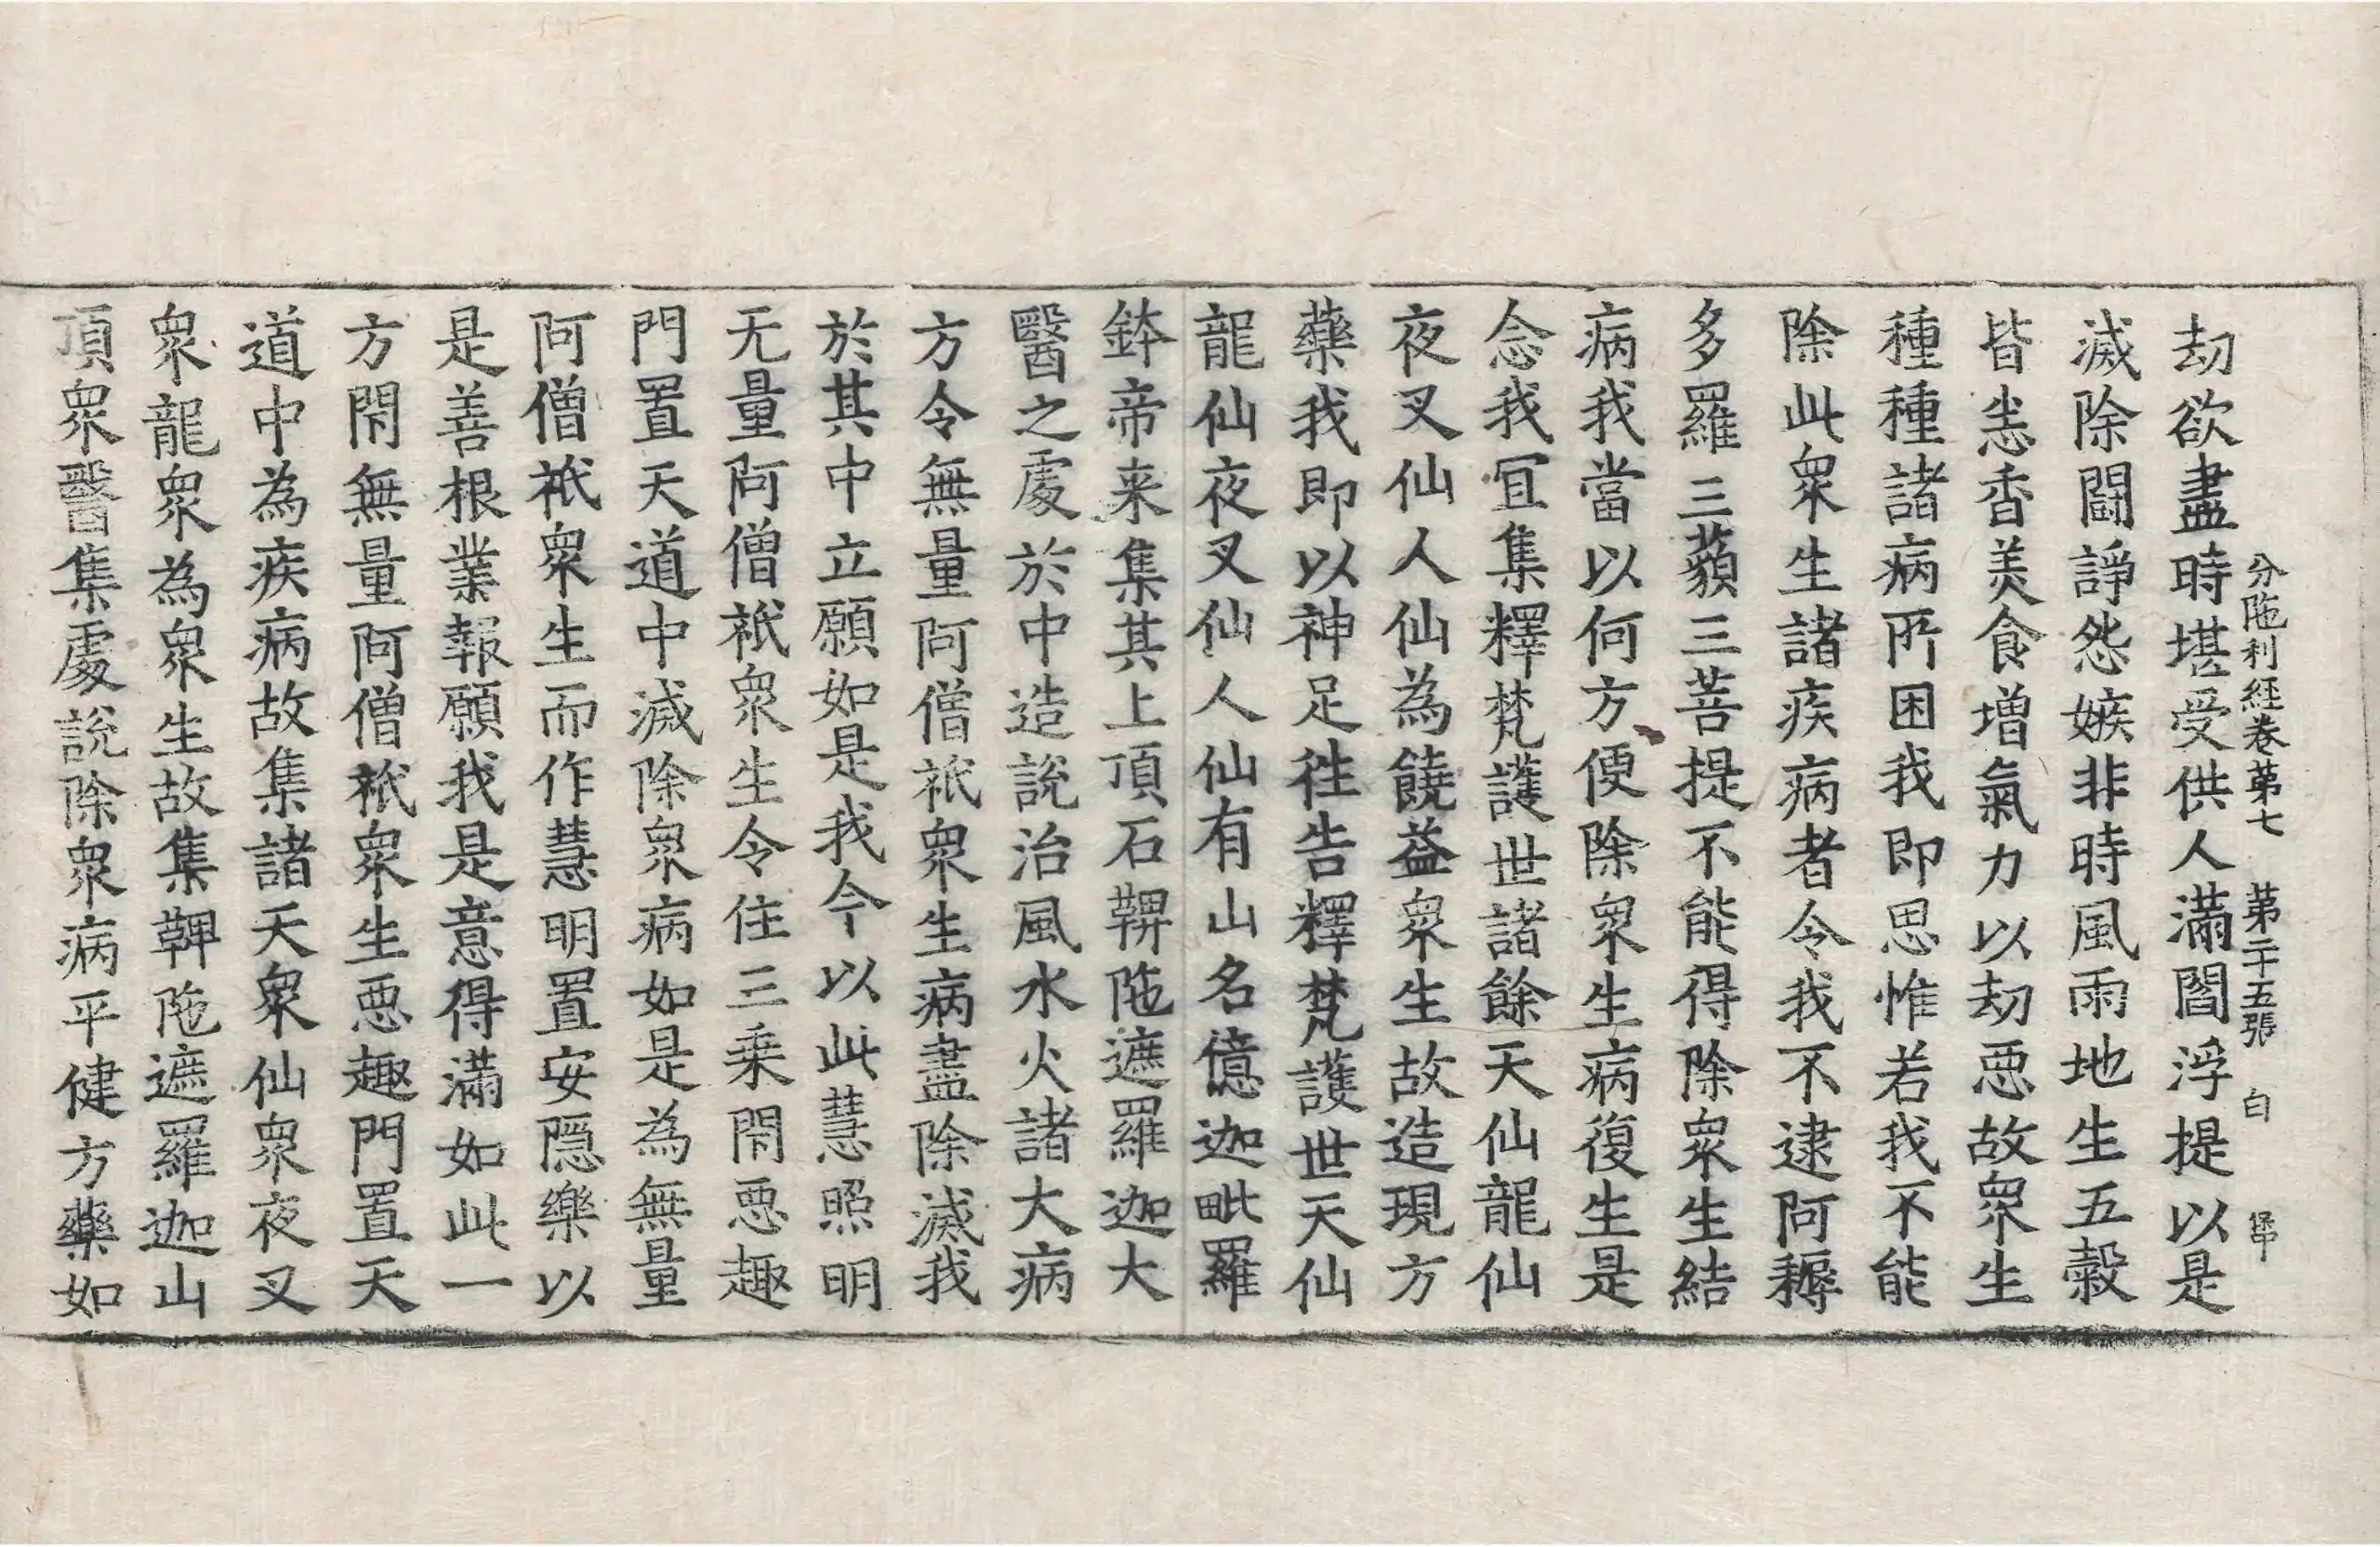 分陁利經卷苐七 苐二十五張 白
劫欲盡時堪受供人滿閻浮提以是
滅除闘諍怨嫉非時風雨地生五糓
皆恙香美食增氣力以劫惡故衆生
種種諸病所困我即思惟若我不能
除此衆生諸疾病者令我不逮阿耨
多羅三藐三菩提不能得除衆生結
病我當以何方便除衆生病復生是
念我冝集釋梵護世諸餘天仙龍仙
夜叉仙人仙為饒益衆生故造現方
藥我即以神足徃告釋梵護世天仙
龍仙夜叉仙人仙有山名億迦毗羅
鉢帝来集其上頂石鞞陁遮羅迦大
醫之處於中造說治風水火諸大病
方令無量阿僧祇衆生病盡除滅我
於其中立願如是我今以此慧照明
无量阿僧祇衆生令住三乗閇惡趣
門置天道中滅除衆病如是為無量
阿僧祇衆生而作慧明置安隱樂以
是善根業報願我是意得滿如此一
方閇無量阿僧祇衆生惡趣門置天
道中為疾病故集諸天衆仙衆夜叉
衆龍衆為衆生故集鞞陁遮羅迦山
頂衆醫集處說除衆病平健方藥如